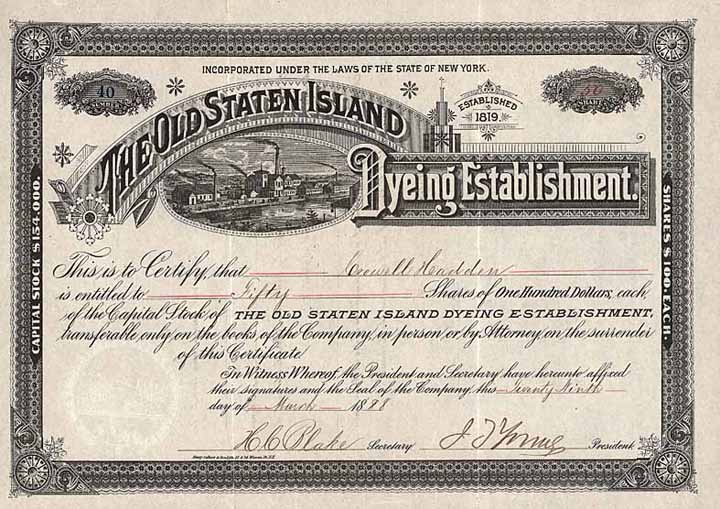 INCORPORATED UNDER THE LAWS OF THE STATE OF NEW YORK.
40
NUMBER
50
SHARES
ESTABLISHED
1819.
THE OLD STATEN ISLAND
Dyeing Establishment.
CAPITAL STOCK $154,000.
SHARES $100 EACH.
This is to Certify, that Crowell Hadden
is entitled to Fifty Shares of One Hundred Dollars, each,
of the Capital Stock of THE OLD STATEN ISLAND DYEING ESTABLISHMENT,
transferable only on the books of the Company, in person or by Attorney, on the surrender
of this Certificate
In Witness Whereof, the President and Secretary have hereunto affixed
their signatures and the Seal of the Company, this Twenty Ninth
day of March 1898
H C Blake Secretary President.